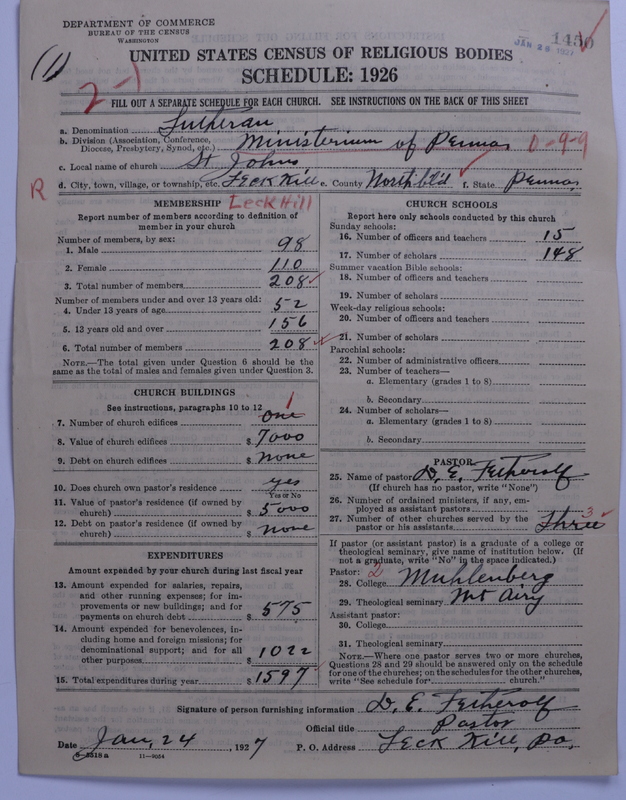 DEPARTMENT OF COMMERCE
BUREAU OF THE CENSUS
WASHINGTON
JAN 28 1927
1450
(1)
2-1
UNITED STATES CENSUS OF RELIGIOUS BODIES
SCHEDULE: 1926
FILL OUT A SEPARATE SCHEDULE FOR EACH CHURCH. SEE INSTRUCTIONS ON THE BACK OF THIS SHEET
a. Denomination Lutheran
b. Division (Association, Conference, Diocese, Presbytery, Synod, etc.) Ministerium of Penna 0-9-9
c. Local name of church St Johns
d. City, town, village, or township, etc. Leck Kill e. County Northb'l'd f. State Penna,
R
Leck Hill
MEMBERSHIP
Report number of members according to definition of
member in your church
Number of members, by sex:
1. Male 98
2. Female 110
3. Total number of members 208
Number of members under and over 13 years old:
4. Under 13 years of age 52
5. 13 years old and over 156
6. Total number of members 208
NOTE.—The total given under Question 6 should be the
same as the total of males and females given under Question 3.
CHURCH BUILDINGS
See instructions, paragraphs 10 to 12
7. Number of church edifices One 1
8. Value of church edifices $ 7000
9. Debt on church edifices $ none
10. Does church own pastor's residence? yes
Yes or No
11. Value of pastor's residence (if owned by
church) $ 5000
12. Debt on pastor's residence (if owned by
church) $ none
EXPENDITURES
Amount expended by your church during last fiscal year
13. Amount expended for salaries, repairs,
and other running expenses; for im-
provements or new buildings; and for
payments on church debt $ 575
14. Amount expended for benevolences, in-
cluding home and foreign missions; for
denominational support; and for all
other purposes $ 1022
15. Total expenditures during year $ 1597
CHURCH SCHOOLS
Report here only schools conducted by this church
Sunday schools:
16. Number of officers and teachers 15
17. Number of scholars 148
Summer vacation Bible schools:
18. Number of officers and teachers
19. Number of scholars
Week-day religious schools:
20. Number of officers and teachers
21. Number of scholars
Parochial schools:
22. Number of administrative officers
23. Number of teachers—
a. Elementary (grades 1 to 8)
b. Secondary
24. Number of scholars—
a. Elementary (grades 1 to 8)
b. Secondary
PASTOR
25. Name of pastor D. E. Fetherolf
(If church has no pastor, write "None")
26. Number of ordained ministers, if any, em-
ployed as assistant pastors
27. Number of other churches served by the
pastor or his assistants Three 3
If pastor (or assistant pastor) is a graduate of a college or
theological seminary, give name of institution below. (If
not a graduate, write "No" in the space indicated.)
Pastor: 2
28. College Muhlenberg
29. Theological seminary Mt Airy
Assistant pastor:
30. College
31. Theological seminary
NOTE.—Where one pastor serves two or more churches,
Questions 28 and 29 should be answered only on the schedule
for one of the churches; on the schedules for the other churches,
write "See schedule for church."
Signature of person furnishing information D. E. Fetherolf
Official title Pastor
Date Jan, 24, 1927 P. O. Address Leck Kill, Pa,
8-5518a 11-9054